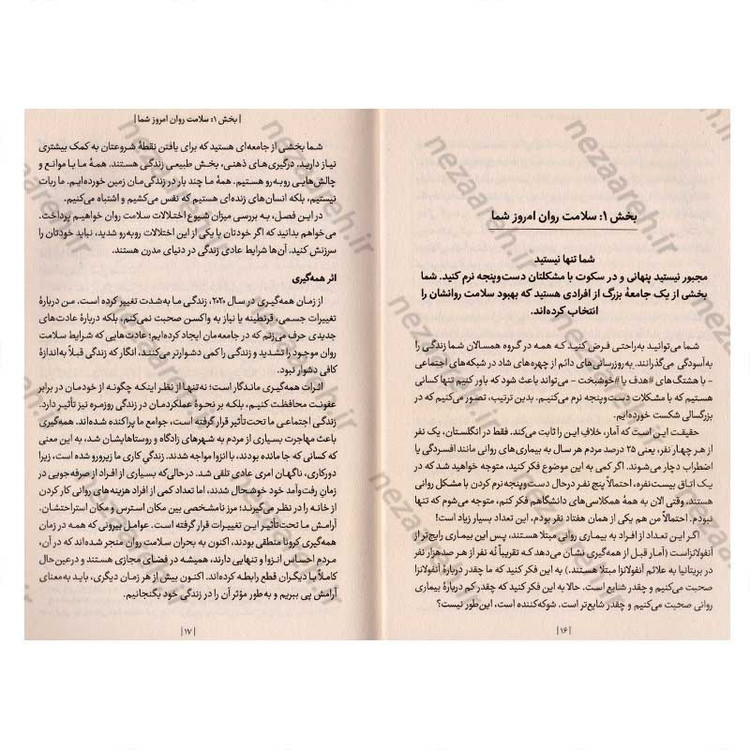 بخش ۱: سلامت روان امروز شما
شما تنها نیستید
مجبور نیستید پنهانی و در سکوت با مشکلتان دست‌وپنجه نرم کنید. شما
بخشی از یک جامعهٔ بزرگ از افرادی هستید که بهبود سلامت روانشان را
انتخاب کرده‌اند.
شما می‌توانید به‌راحتی فرض کنید که همه در گروه همسالان شما زندگی را
به‌آسودگی می‌گذرانند. به‌روزرسانی‌های دائم از چهره‌های شاد در شبکه‌های اجتماعی
- با هشتگ‌های #هدف یا #خوشبخت - می‌تواند باعث شود که باور کنیم تنها کسانی
هستیم که با مشکلات دست‌وپنجه نرم می‌کنیم. بدین ترتیب، تصور می‌کنیم که در
بزرگسالی شکست خورده‌ایم.
حقیقت این است که آمار، خلافِ این را ثابت می‌کند. فقط در انگلستان، یک نفر
از هر چهار نفر، یعنی ۲۵ درصد مردم هر سال به بیماری‌های روانی مانند افسردگی یا
اضطراب دچار می‌شوند. اگر کمی به این موضوع فکر کنید، متوجه خواهید شد که در
یک اتاق بیست‌نفره، احتمالاً پنج نفر درحال دست‌وپنجه‌نرم کردن با مشکل روانی
هستند. وقتی الان به همهٔ همکلاسی‌های دانشگاهم فکر کنم، متوجه می‌شوم که تنها
نبودم. احتمالاً من هم یکی از همان هفتاد نفر بودم. این تعداد بسیار زیاد است!
اگر این تعداد از افراد به بیماری روانی مبتلا هستند، پس این بیماری رایج‌تر از
آنفولانزاست (آمار قبل از همه‌گیری نشان می‌دهد که تقریباً نُه نفر از هر صدهزار نفر
در بریتانیا به علائم آنفولانزا مبتلا هستند.) به این فکر کنید که ما چقدر دربارهٔ آنفولانزا
صحبت می‌کنیم و چقدر شایع است. حالا به این فکر کنید که چقدر کم دربارهٔ بیماری
روانی صحبت می‌کنیم و چقدر شایع‌تر است. شوکه‌کننده است، این‌طور نیست؟
|۱۶|
| بخش ۱: سلامت روان امروز شما |
شما بخشی از جامعه‌ای هستید که برای یافتن نقطهٔ شروعتان به کمک بیشتری
نیاز دارید. درگیری‌های ذهنی، بخش طبیعی زندگی هستند. همهٔ ما با موانع و
چالش‌هایی روبه‌رو هستیم. همهٔ ما چند بار در زندگی‌مان زمین خورده‌ایم. ما ربات
نیستیم، بلکه انسان‌های زنده‌ای هستیم که نفس می‌کشیم و اشتباه می‌کنیم.
در این فصل، به بررسی میزان شیوع اختلالات سلامت روان خواهیم پرداخت.
می‌خواهم بدانید که اگر خودتان یا یکی از این اختلالات روبه‌رو شدید، نباید خودتان را
سرزنش کنید. آن‌ها شرایط عادی زندگی در دنیای مدرن هستند.
اثر همه‌گیری
از زمان همه‌گیری در سال ۲۰۲۰، زندگی ما به‌شدت تغییر کرده است. من دربارهٔ
تغییرات جسمی، قرنطینه یا نیاز به واکسن صحبت نمی‌کنم، بلکه دربارهٔ عادت‌های
جدیدی حرف می‌زنم که در جامعه‌مان ایجاد کرده‌ایم؛ عادت‌هایی که شرایط سلامت
روان موجود را تشدید و زندگی را کمی دشوارتر می‌کنند. انگار که زندگی قبلاً به‌اندازهٔ
کافی دشوار نبود.
اثرات همه‌گیری ماندگار است؛ نه‌تنها از نظر اینکه چگونه از خودمان در برابر
عفونت محافظت کنیم، بلکه بر نحوهٔ عملکردمان در زندگی روزمره نیز تأثیر دارد.
زندگی اجتماعی ما تحت‌تأثیر قرار گرفته است، جوامع ما پراکنده شده‌اند. همه‌گیری
باعث مهاجرت بسیاری از مردم به شهرهای زادگاه و روستاهایشان شد، به این معنی
که کسانی که جا مانده بودند، با انزوا مواجه شدند. زندگیِ کاری ما زیرورو شده، زیرا
دورکاری، ناگهان امری عادی تلقی شد. درحالی‌که بسیاری از افراد از صرفه‌جویی در
زمانِ رفت‌وآمد خود خوشحال شدند، اما تعداد کمی از افراد هزینه‌های روانی کار کردن
از خانه را در نظر می‌گیرند؛ مرز نامشخصی بین مکان استرس و مکان استراحتشان.
آرامش ما تحت‌تأثیر این تغییرات قرار گرفته است. عوامل بیرونی که همه در زمان
همه‌گیری کرونا منطقی بودند، اکنون به بحران سلامت روان منجر شده‌اند که در آن،
مردم احساس انزوا و تنهایی دارند، همیشه در فضای مجازی هستند و درعین‌حال
کاملاً با دیگران قطع رابطه کرده‌اند. اکنون بیش از هر زمان دیگری، باید به‌معنای
آرامش پی ببریم و به‌طور مؤثر آن را در زندگی خود بگنجانیم.
|۱۷|
nezaareh.ir
nezaareh.ir
nezaareh.ir
nezaareh.ir
nezaareh.ir
nezaareh.ir